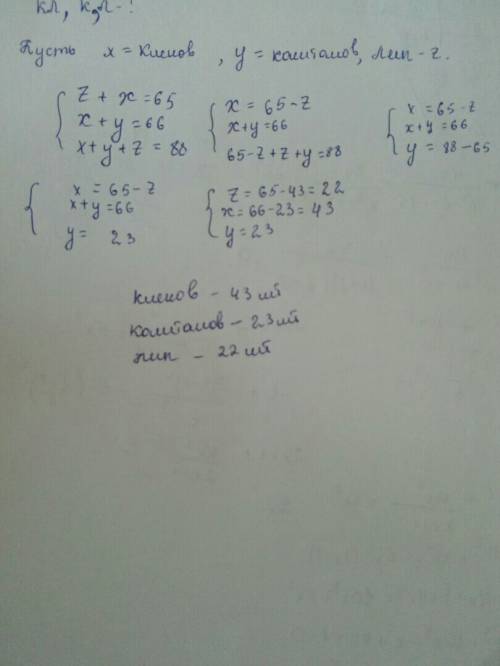 кл, к, л - !
Пусть x = кленов, y = каштанов, лип - z.
z + x = 65
x + y = 66
x + y + z = 88
x = 65 - z
x + y = 66
65 - z + z + y = 88
x = 65 - z
x + y = 66
y = 88 - 65
x = 65 - z
x + y = 66
y = 23
z = 65 - 43 = 22
x = 66 - 23 = 43
y = 23
кленов - 43 шт
каштанов - 23 шт
лип - 22 шт